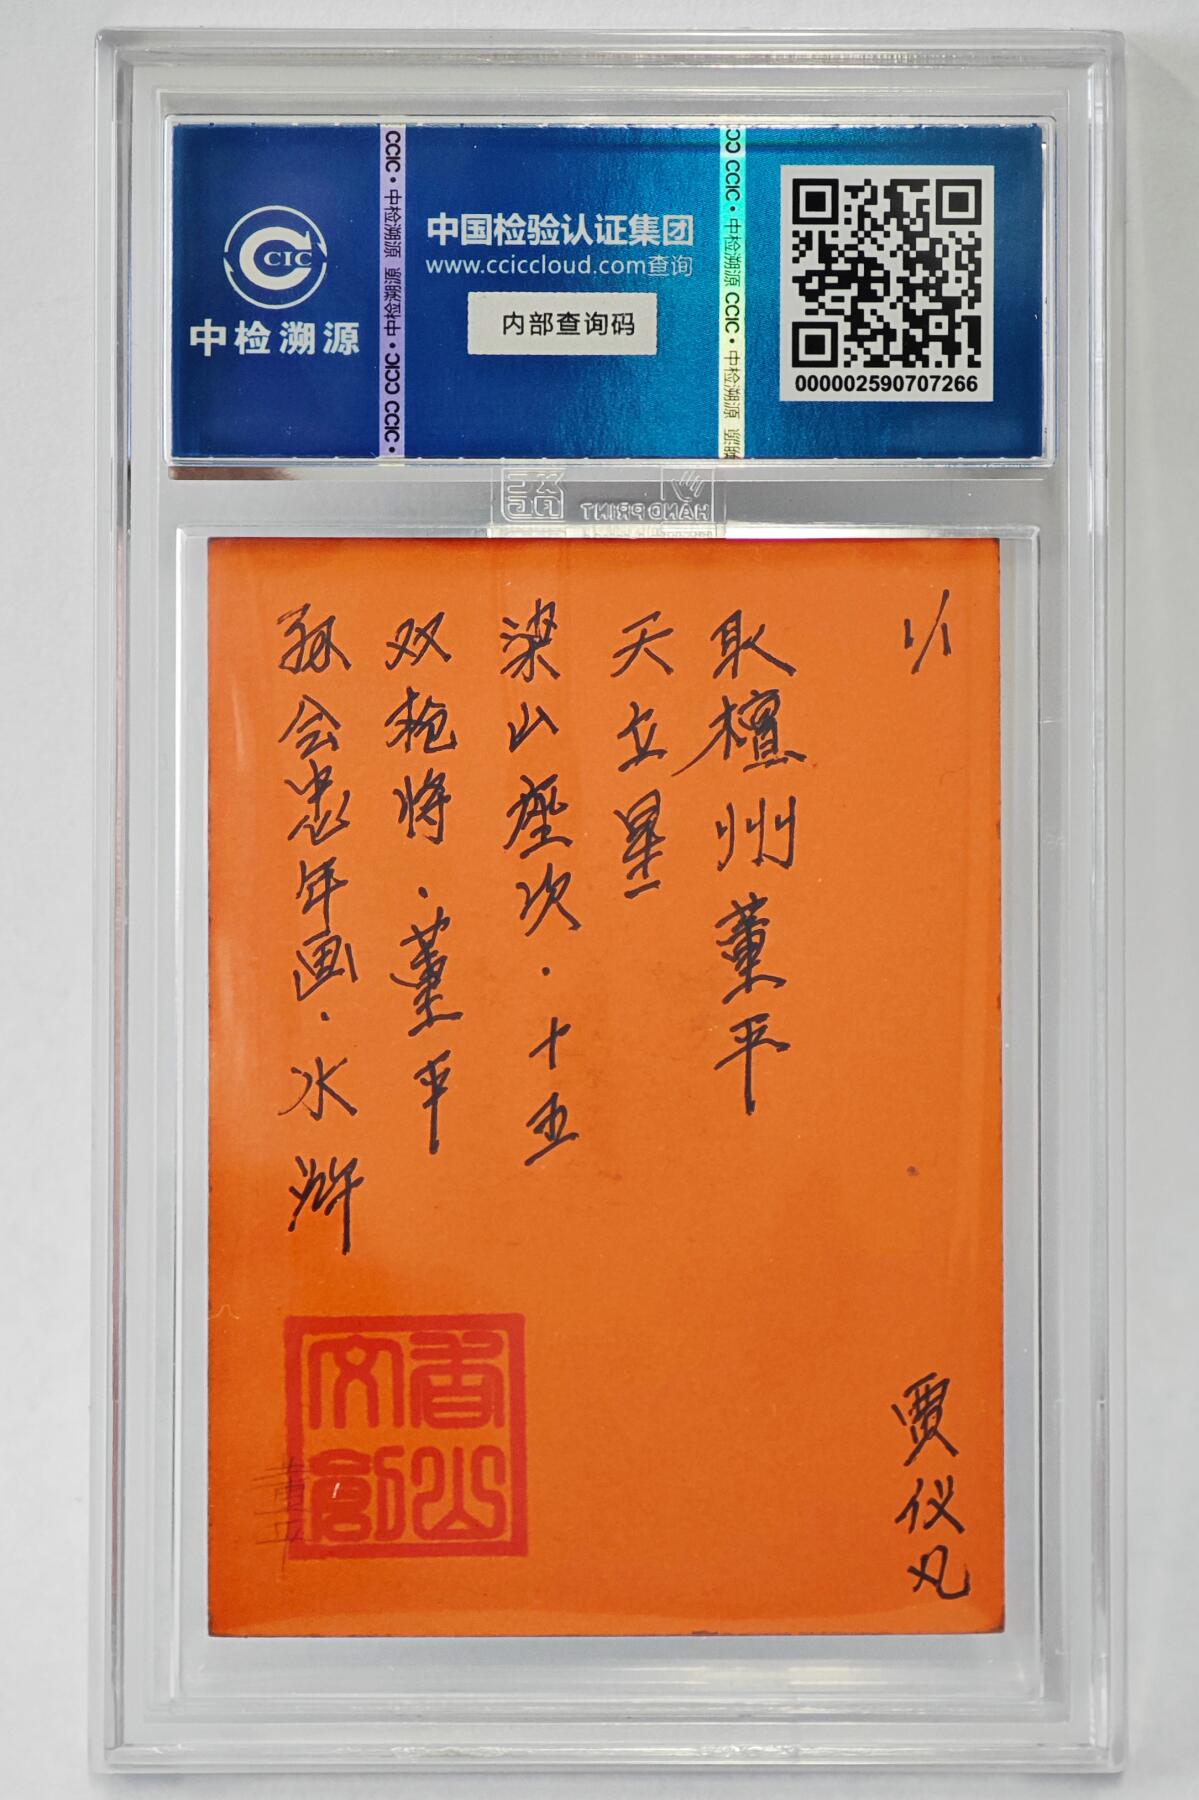 CIC
中检溯源
CCIC·中检溯源
中检溯源·CCIC
CCIC·
中国检验认证集团
www.cciccloud.com查询
内部查询码
CCIC·中检溯源 CCIC·中检溯源
000002590707266
HAND PRINT
1/1
取檀州董平
天立星
梁山座次·十五
双枪将·董平
孙会忠年画·水浒
贾仪凡
香山文创
董平